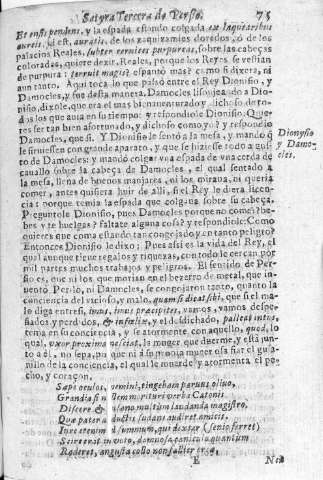 Satyra Tercera de Persio. 75
Et ensis pendens, y la espada estando colgada ex laquearibus
aureis, id est, auratis, de los zaquizamies dorados de los
palacios Reales, subter cervices purpureas, sobre las cabeças
coloradas, quiere dezir, Reales, porque los Reyes se vestian
de purpura: terruit magis? espantò mas? como si dixera, ni
aun tanto. Aqui toca lo que passò entre el Rey Dionysio, y
Damocles, y fue desta manera. Damocles lisonjeando a Dio-
nisio, dixole, que era el mas bienaventurado y dichoso de to-
dos los que auia en su tiempo: y respondiole Dionisio, Quie-
res ser tan bien afortunado, y dichoso como yo? y respondio
Damocles, que si. Y Dionisio le sentò a la mesa, y mandò q̃
le siruiessen con grande aparato, y que se hiziesse todo a gus-
to de Damocles: y mandò colgar vna espada de vna cerda de
cauallo sobre la cabeça de Damocles, el qual sentado a
la mesa, llena de buenos manjares, ni los miraua, ni queria
comer, antes quisiera huir de alli, si el Rey le diera licen-
cia: porque temia la espada que colgaua sobre su cabeça.
Preguntole Dionisio, pues Damocles porque no comes? be-
bes y te huelgas? faltate alguna cosa? y respondiole: Como
quieres que coma estando tan congojado y en tanto peligro?
Entonces Dionisio le dixo: Pues assi es la vida del Rey, el
qual aunque tiene regalos y riquezas, con todo le cercan por
mil partes muchos trabajos y peligros. El sentido de Per-
sio es, que ni los que morian en el bezerro de metal, que in-
uentò Perilo, ni Damocles, se congojaron tanto, quanto la
conciencia del vicioso, y malo, quam si dicat sibi, que si el ma-
lo diga entre si, imus, imus præcipites, vamos, vamos despe-
ñados y perdidos, & infelix, y el desdichado, palleat intus,
tema en su conciencia, y se atormente con aquello, quod, lo
qual, vxor proxima nesciat, la muger que duerme, y està jun-
to a èl, no sepa, pu que ni a su propia muger osa fiar el gusa-
nillo de la conciencia, el qual le muerde y atormenta el pe-
cho, y coraçon.
Sæpe oculos, memini, tingebam paruus oliuo,
Grandia si nollem morituri verba Catonis
Discere & non sano multùm laudanda magistro,
Quæ pater adductis sudans audiret amicis.
Iure etenim id summum, quid dexter (senio ferret)
Scire erat in voto, damnosa canicula quantum
Raderet, angustæ collo non fallier orcæ,
E Nec
Dionysio
y Damo-
cles.